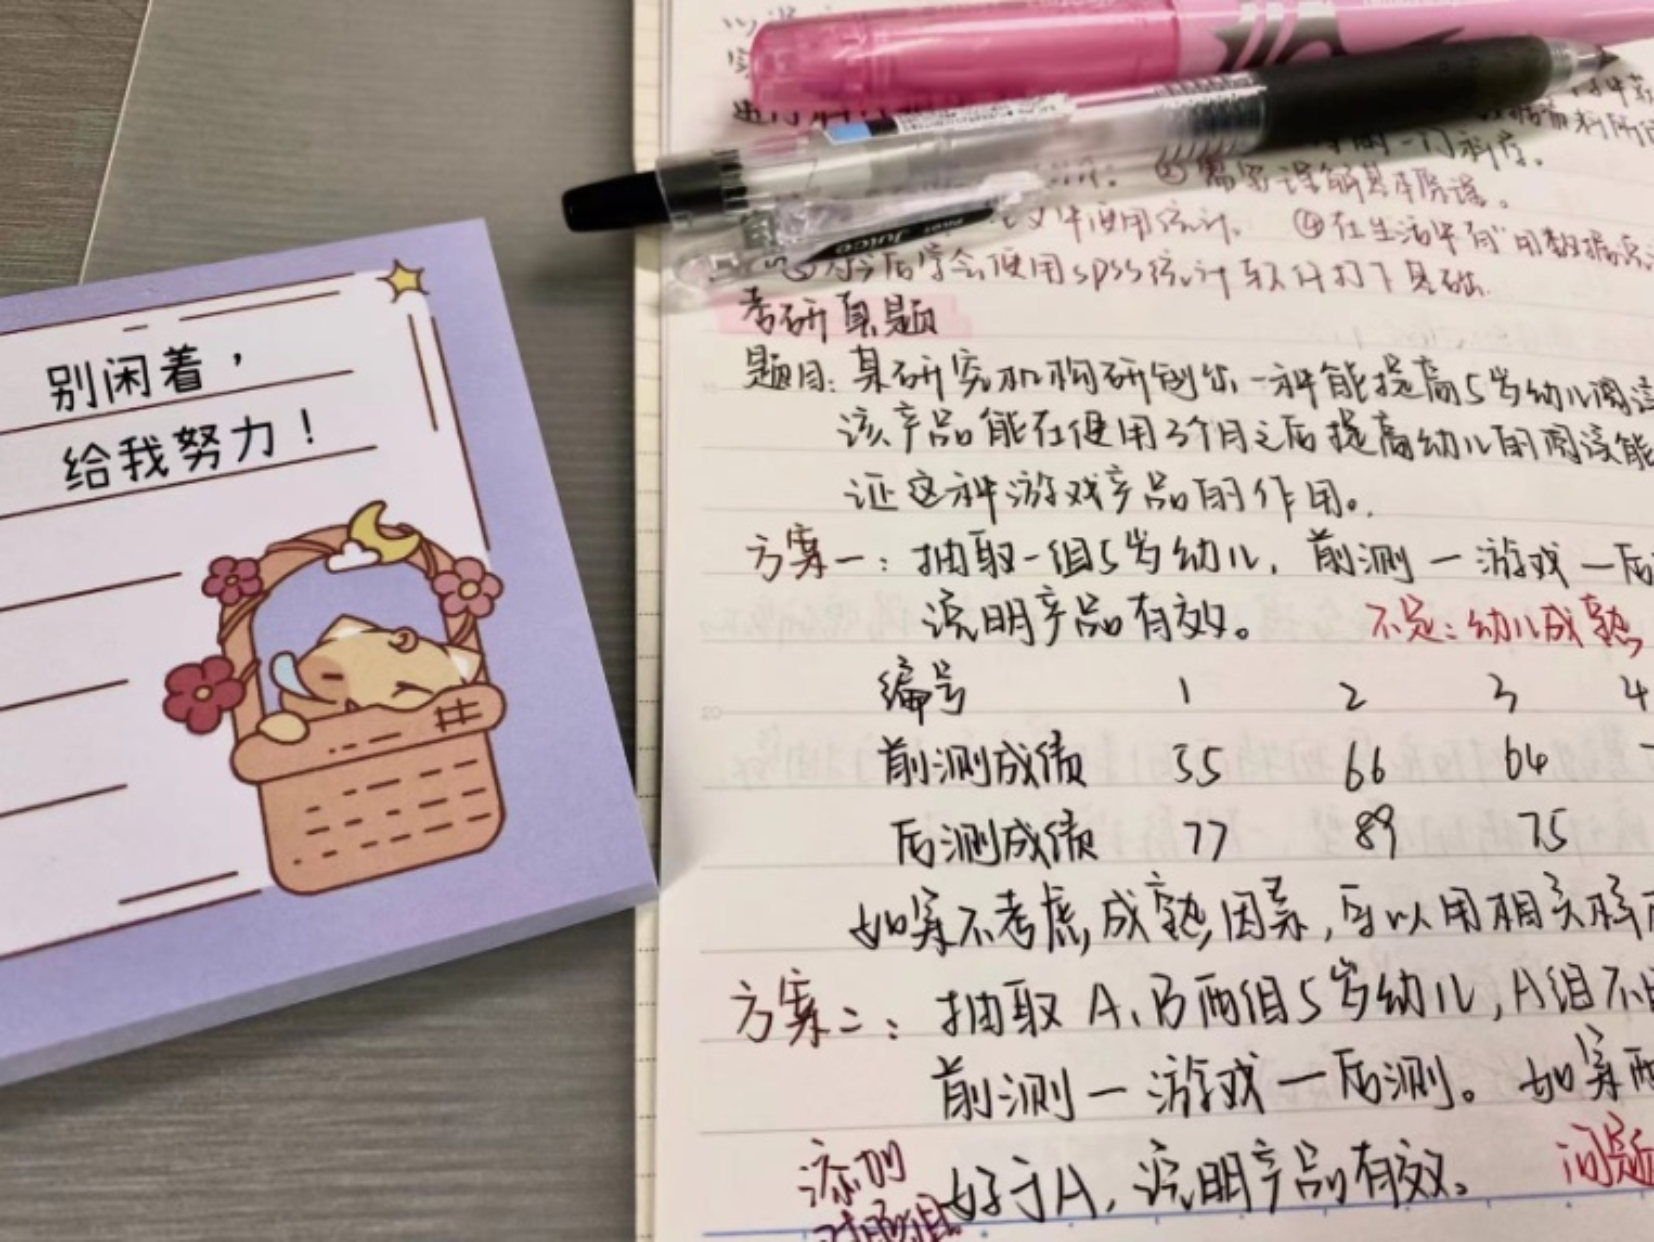 别闲着，
给我努力！
Juice
一门科学。
②需要理解基本原理。
使用统计。 ④在生活中有"用数据说
后学会使用spss统计软件打下基础
考研真题
题目：某研究机构研创出一种能提高5岁幼儿阅读
该产品能在使用3个月之后提高幼儿的阅读能
证这种游戏产品的作用。
方案一：抽取一组5岁幼儿，前测一游戏一后
说明产品有效。 不足：幼儿成熟
编号 1 2 3 4
前测成绩 55 66 64
后测成绩 77 89 75
如果不考虑成熟因素，可以用相关样
方案二：抽取A、B两组5岁幼儿，A组不
前测一游戏一后测。如果两
添加 好于A，说明产品有效。 问题
对照组
20